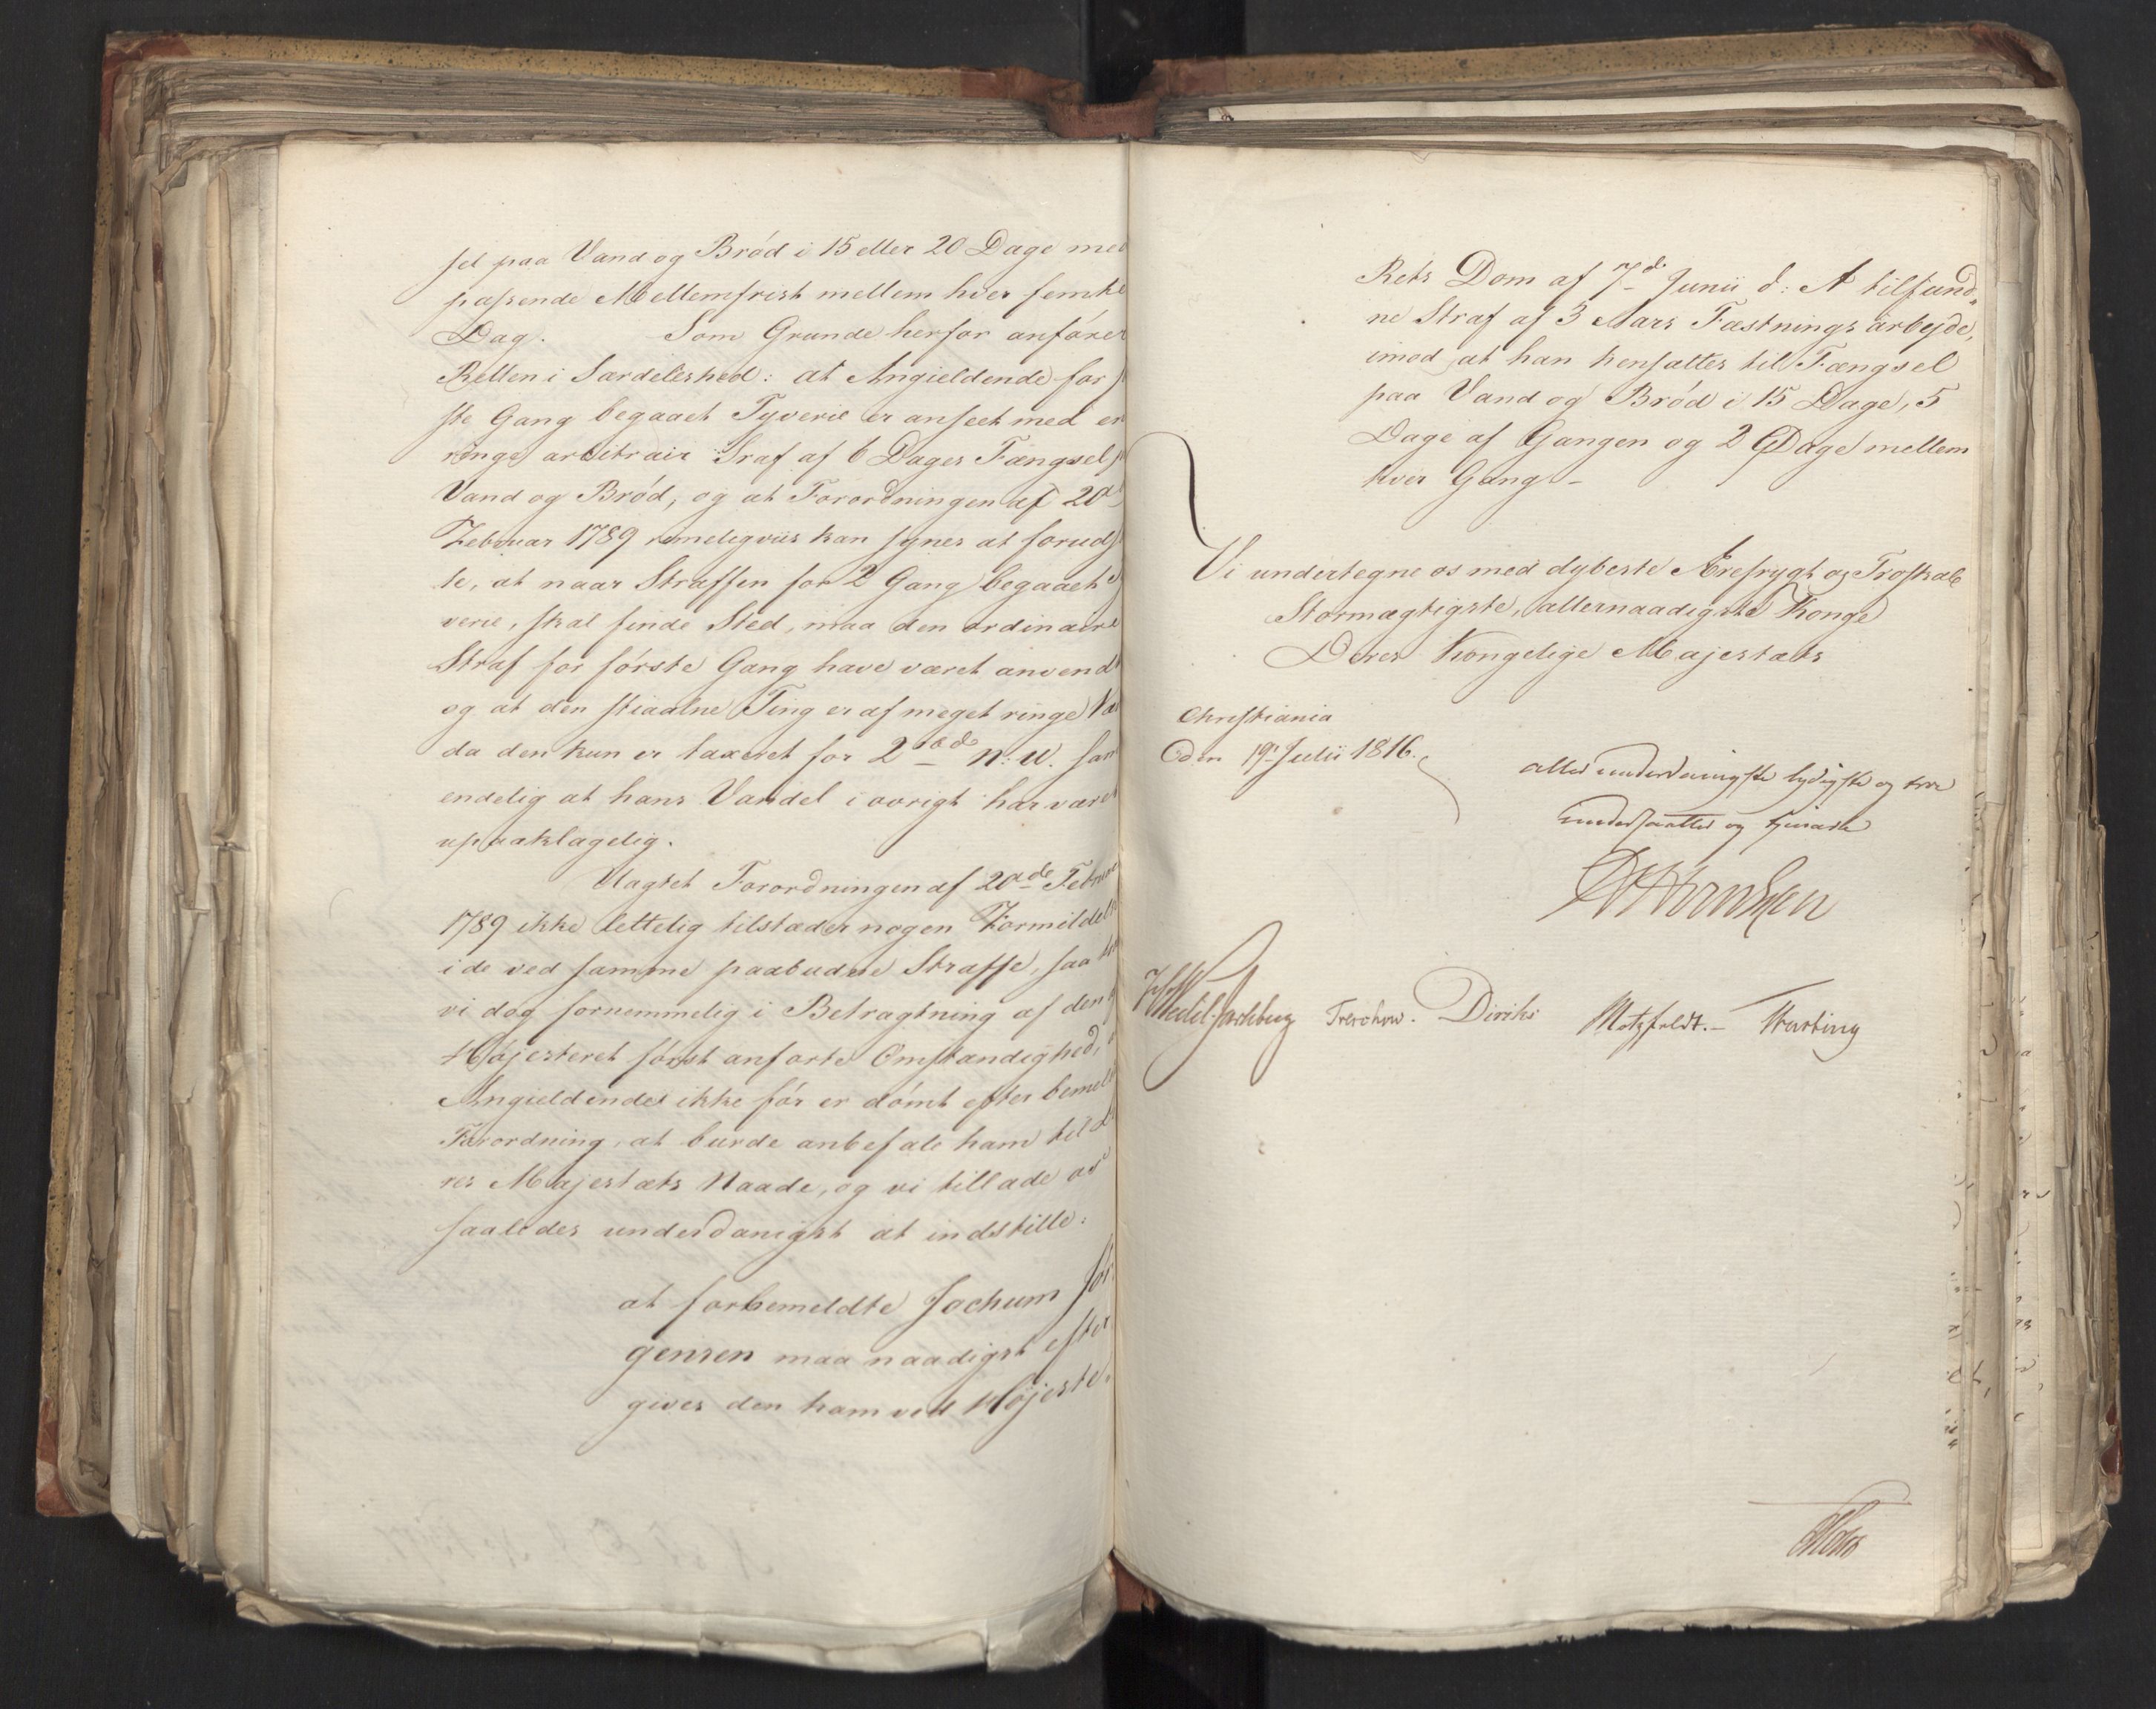 sel paa Vand og Brød i 15 eller 20 Dage med
passende Mellemfrist mellem hver femte
Dag. Som Grunde herfor anfører
Retten i Særdeleshed: at Angieldende for
ste Gang begaaet Tyverie er anseet med en
ringe arbitrair Straf af 6 Dages Fængsel
Vand og Brød, og at Forordningen af 20d
Februar 1789 rimeligviis kan synes at forud
te, at naar Straffen for 2 Gang begaaet
verie, skal finde Sted, maa den ordinaire
Straf for første Gang have været anvendt
og at den stiaalne Ting er af meget ringe Væ
da den kun er taxeret for 2 rbd N: V. samt
endelig at hans Vandel i øvrigt har været
upaaklagelig.
Uagtet Forordningen af 20de Februar
1789 ikke lettelig tilstæder nogen Formildelse
i de ved samme paabudne Straffe, saa
vi dog fornemmelig i Betragtning af den
Høiesteret først anførte Omstændighed,
Angieldende ikke før er dømt efter bemeldte
Forordning, at burde anbefale ham til De
res Majestæts Naade, og vi tillade os
saaledes underdanigst at indstille:
at forbemeldte Jochum Jør
gensen maa naadigst efter
gives den ham ved Højeste
Rets Dom af 7d Junii d: A tilfund„
ne Straf af 3 Aars Fæstnings arbejde,
imod at han hensættes til Fængsel
paa Vand og Brød i 15 Dage, 5
Dage af Gangen og 2 Dage mellem
hver Gang –
Vi undertegne os med dybeste Ærefrygt og Troskab
Stormægtigste, allernaadigste Konge
Deres Kongelige Majestæts
Christiania
den 19 Julii 1816.
allerunderdanigste lydigste og troe
undersaatter og tjenere
Wedel-Jarlsberg Treschow. Diriks Motzfeldt. – Krebting